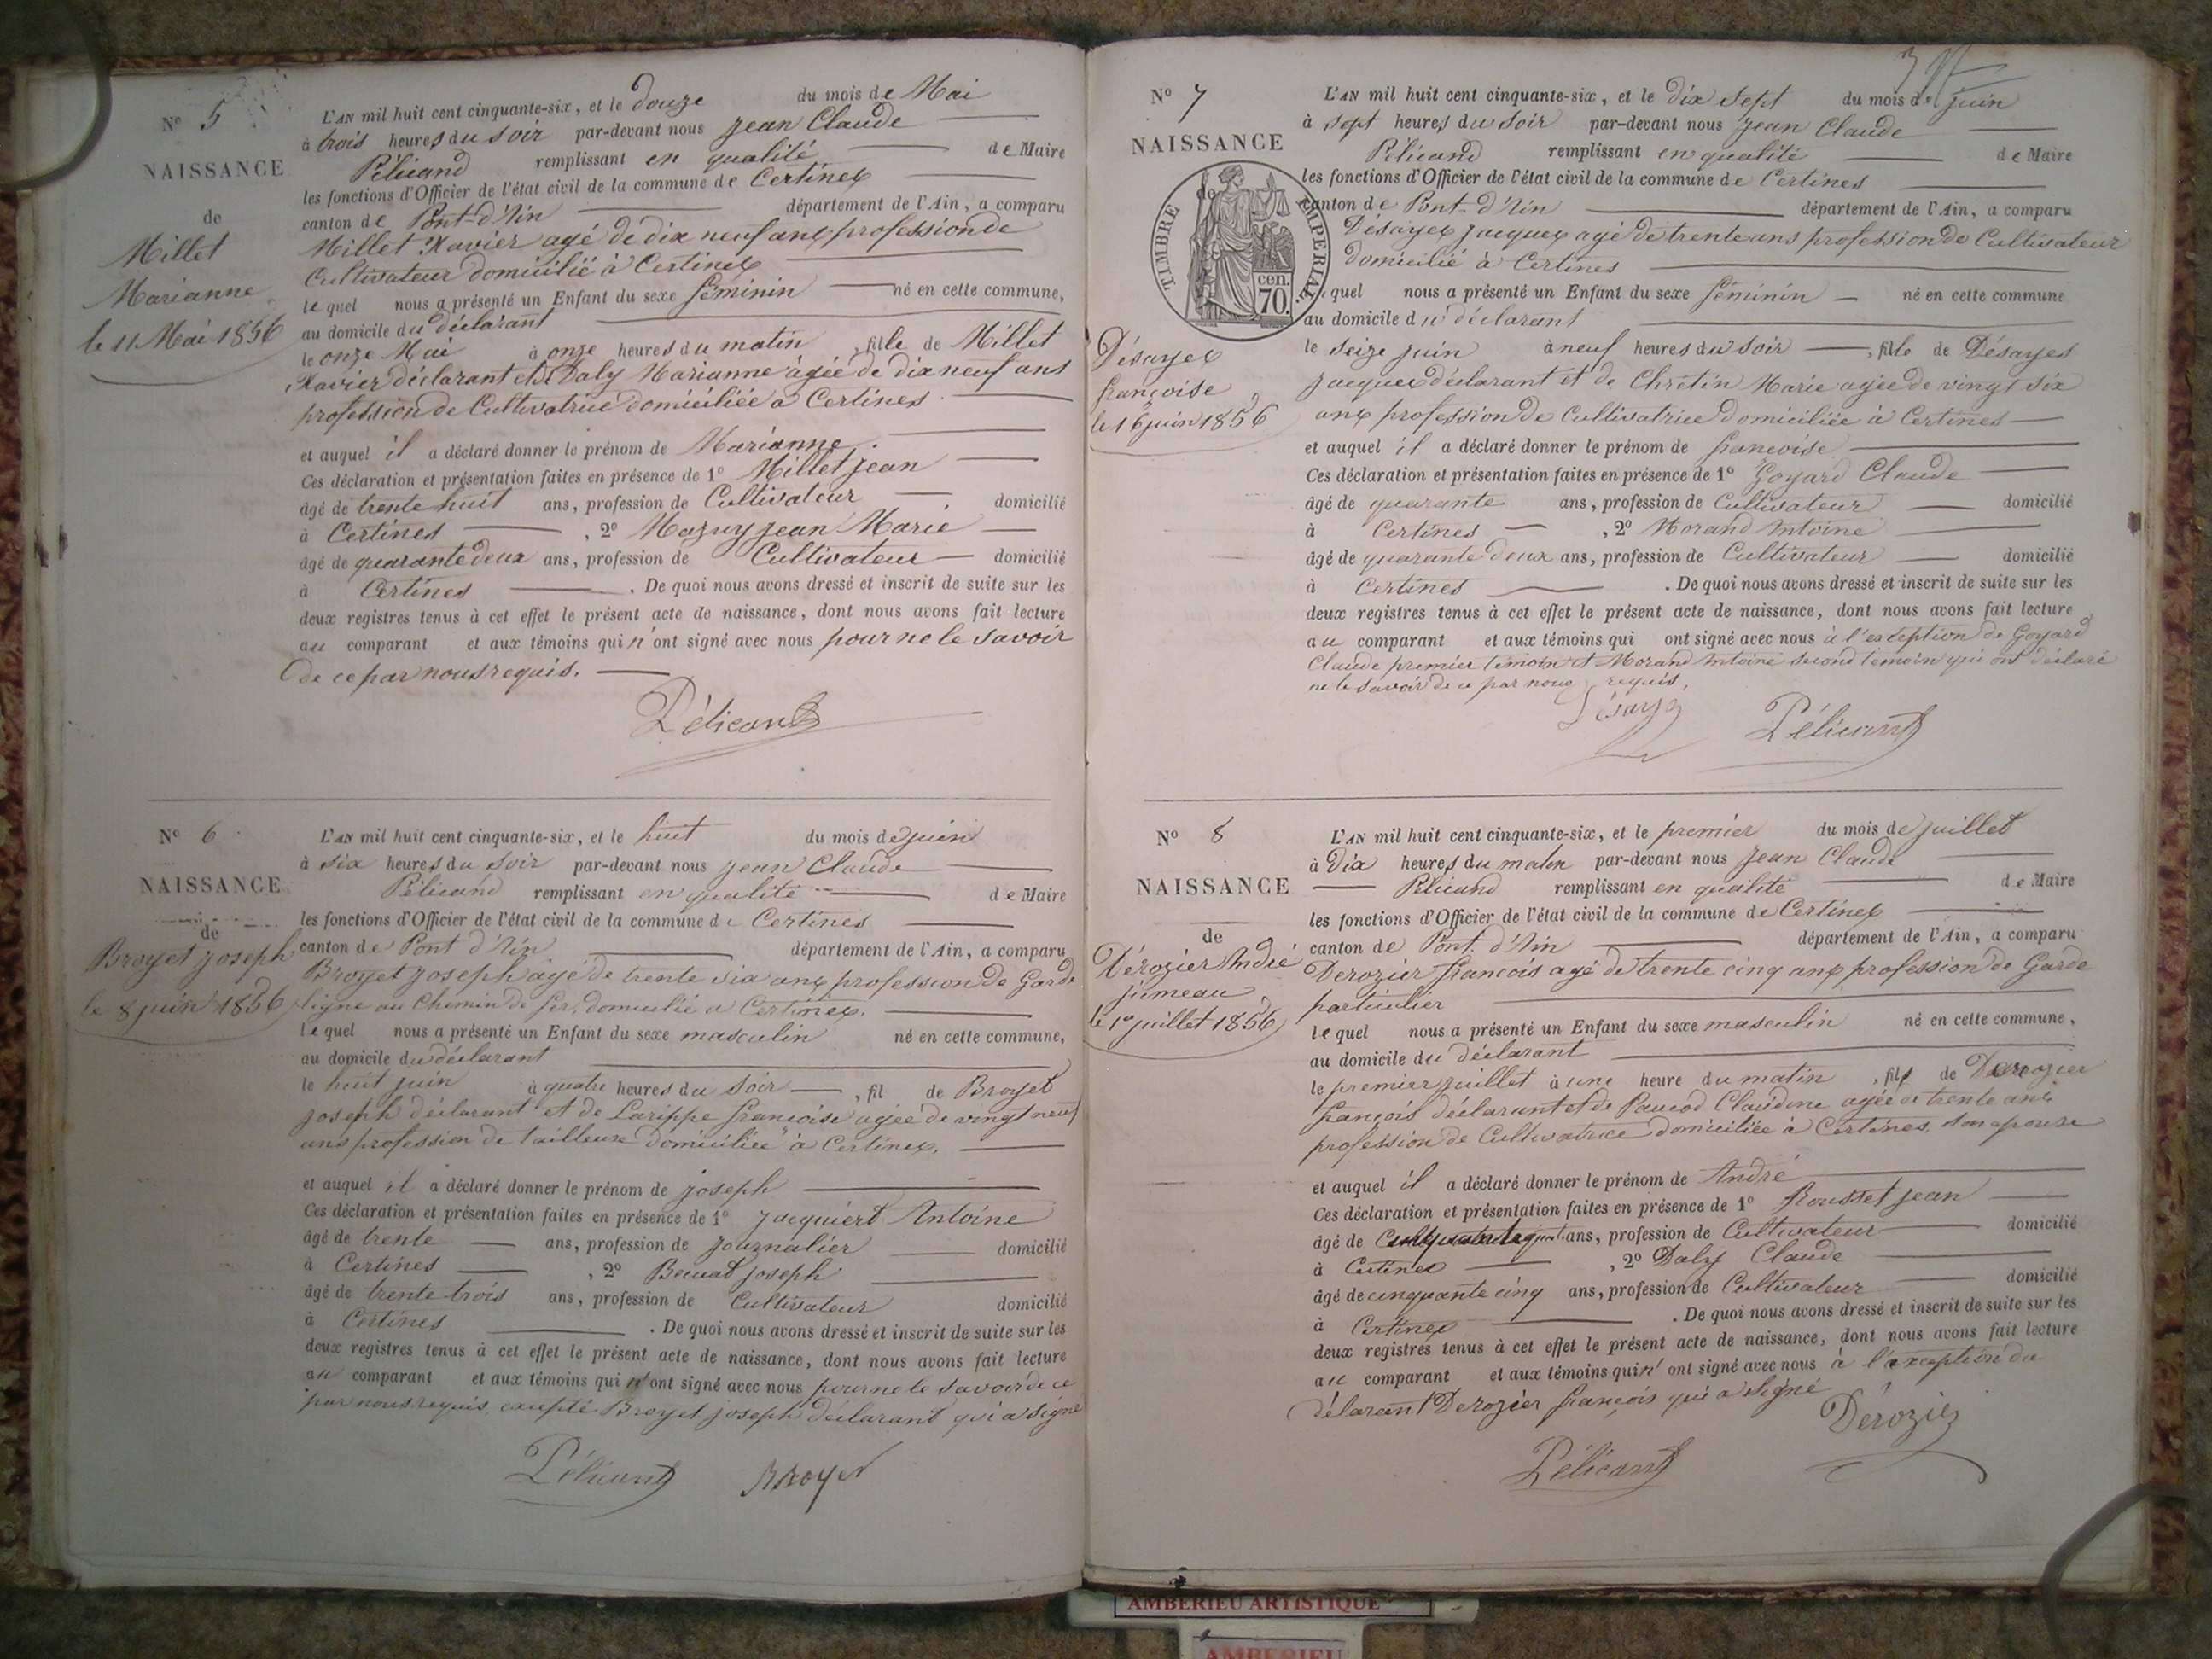 Nº 5
NAISSANCE
de
Millet
Marianne
le 11 Mai 1856
L'AN mil huit cent cinquante-six, et le douze du mois de Mai
à trois heures du soir par-devant nous Jean Claude
Pélicand remplissant en qualité de Maire
les fonctions d'Officier de l'état civil de la commune de Certines
canton de Pont-d'Ain département de l'Ain, a comparu
Millet Xavier agé de dix neuf ans profession de
Cultivateur domicilié à Certines
lequel nous a présenté un Enfant du sexe féminin né en cette commune,
au domicile du déclarant
le onze Mai à onze heures du matin, fille de Millet
Xavier déclarant et de Daly Marianne âgée de dix neuf ans
profession de Cultivatrice domiciliée à Certines
et auquel il a déclaré donner le prénom de Marianne.
Ces déclaration et présentation faites en présence de 1º Millet Jean
âgé de trente huit ans, profession de Cultivateur domicilié
à Certines, 2º Mazuy Jean Marie
âgé de quarante deux ans, profession de Cultivateur domicilié
à Certines. De quoi nous avons dressé et inscrit de suite sur les
deux registres tenus à cet effet le présent acte de naissance, dont nous avons fait lecture
au comparant et aux témoins qui n'ont signé avec nous pour ne le savoir
de ce par nous requis.
Pélicand
Nº 6
NAISSANCE
de
Broyet Joseph
le 8 juin 1856
L'AN mil huit cent cinquante-six, et le huit du mois de juin
à six heures du soir par-devant nous Jean Claude
Pélicand remplissant en qualité de Maire
les fonctions d'Officier de l'état civil de la commune de Certines
canton de Pont d'Ain département de l'Ain, a comparu
Broyet Joseph âgé de trente six ans profession de Garde
ligne au Chemin de fer, domicilié à Certines.
lequel nous a présenté un Enfant du sexe masculin né en cette commune,
au domicile du déclarant
le huit juin à quatre heures du soir, fil de Broyet
Joseph déclarant et de Larippe françoise agée de vingt neuf
ans profession de tailleuse domiciliée à Certines.
et auquel il a déclaré donner le prénom de Joseph
Ces déclaration et présentation faites en présence de 1º Jacquiert Antoine
âgé de trente ans, profession de journalier domicilié
à Certines, 2º Joseph
âgé de trente-trois ans, profession de Cultivateur domicilié
à Certines. De quoi nous avons dressé et inscrit de suite sur les
deux registres tenus à cet effet le présent acte de naissance, dont nous avons fait lecture
au comparant et aux témoins qui n'ont signé avec nous pour ne le savoir de ce
par nous requis, excepté Broyet Joseph déclarant qui a signé
Pélicand Broyet
Nº 7
NAISSANCE
de
TIMBRE IMPERIAL.
cen.
70.
Désayes
françoise
le 16 juin 1856
L'AN mil huit cent cinquante-six, et le dix sept du mois de juin
à sept heures du soir par-devant nous Jean Claude
Pélicand remplissant en qualité de Maire
les fonctions d'Officier de l'état civil de la commune de Certines
canton de Pont-d'Ain département de l'Ain, a comparu
Désayes Jacques agé de trente ans profession de Cultivateur
domicilié à Certines
lequel nous a présenté un Enfant du sexe féminin né en cette commune
au domicile du déclarant
le seize juin à neuf heures du soir, fille de Désayes
Jacques déclarant et de Chrétin Marie agée de vingt six
ans profession de Cultivatrice domiciliée à Certines
et auquel il a déclaré donner le prénom de françoise
Ces déclaration et présentation faites en présence de 1º Goyard Claude
âgé de quarante ans, profession de Cultivateur domicilié
à Certines, 2º Morand Antoine
âgé de quarante deux ans, profession de Cultivateur domicilié
à Certines. De quoi nous avons dressé et inscrit de suite sur les
deux registres tenus à cet effet le présent acte de naissance, dont nous avons fait lecture
au comparant et aux témoins qui ont signé avec nous à l'exception de Goyard
Claude premier témoin et Morand Antoine second témoin qui ont déclaré
ne le savoir de ce par nous requis,
Désayes Pélicand
Nº 8
NAISSANCE
de
Dérozier André
jumeau
le 1er juillet 1856
L'AN mil huit cent cinquante-six, et le premier du mois de juillet
à Dix heures du matin par-devant nous Jean Claude
Pélicand remplissant en qualité de Maire
les fonctions d'Officier de l'état civil de la commune de Certines
canton de Pont d'Ain département de l'Ain, a comparu
Derozier françois agé de trente cinq ans profession de Garde
particulier
lequel nous a présenté un Enfant du sexe masculin né en cette commune,
au domicile du déclarant
le premier juillet à une heure du matin, fils de Derozier
françois déclarant et de Paucod Claudine agée de trente ans
profession de Cultivatrice domiciliée à Certines, son epouse
et auquel il a déclaré donner le prénom de André
Ces déclaration et présentation faites en présence de 1º Rousset Jean
âgé de ans, profession de Cultivateur domicilié
à Certines, 2º Daly Claude
âgé de cinquante cinq ans, profession de Cultivateur domicilié
à Certines. De quoi nous avons dressé et inscrit de suite sur les
deux registres tenus à cet effet le présent acte de naissance, dont nous avons fait lecture
au comparant et aux témoins qui n'ont signé avec nous à l'exception du
délarant Derozier françois qui a signé
Dérozier
Pélicand
AMBERIEU ARTISTIQUE
AMBERIEU